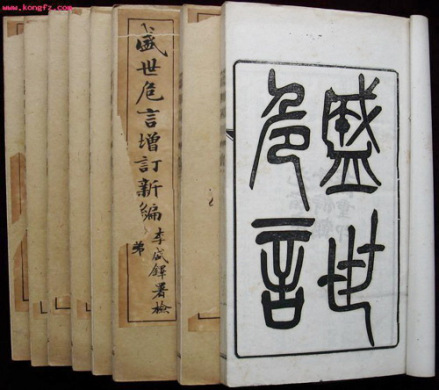 www.kongfz.com
盛世
危言
盛世危言增訂新編
李盛鐸署檢
弟